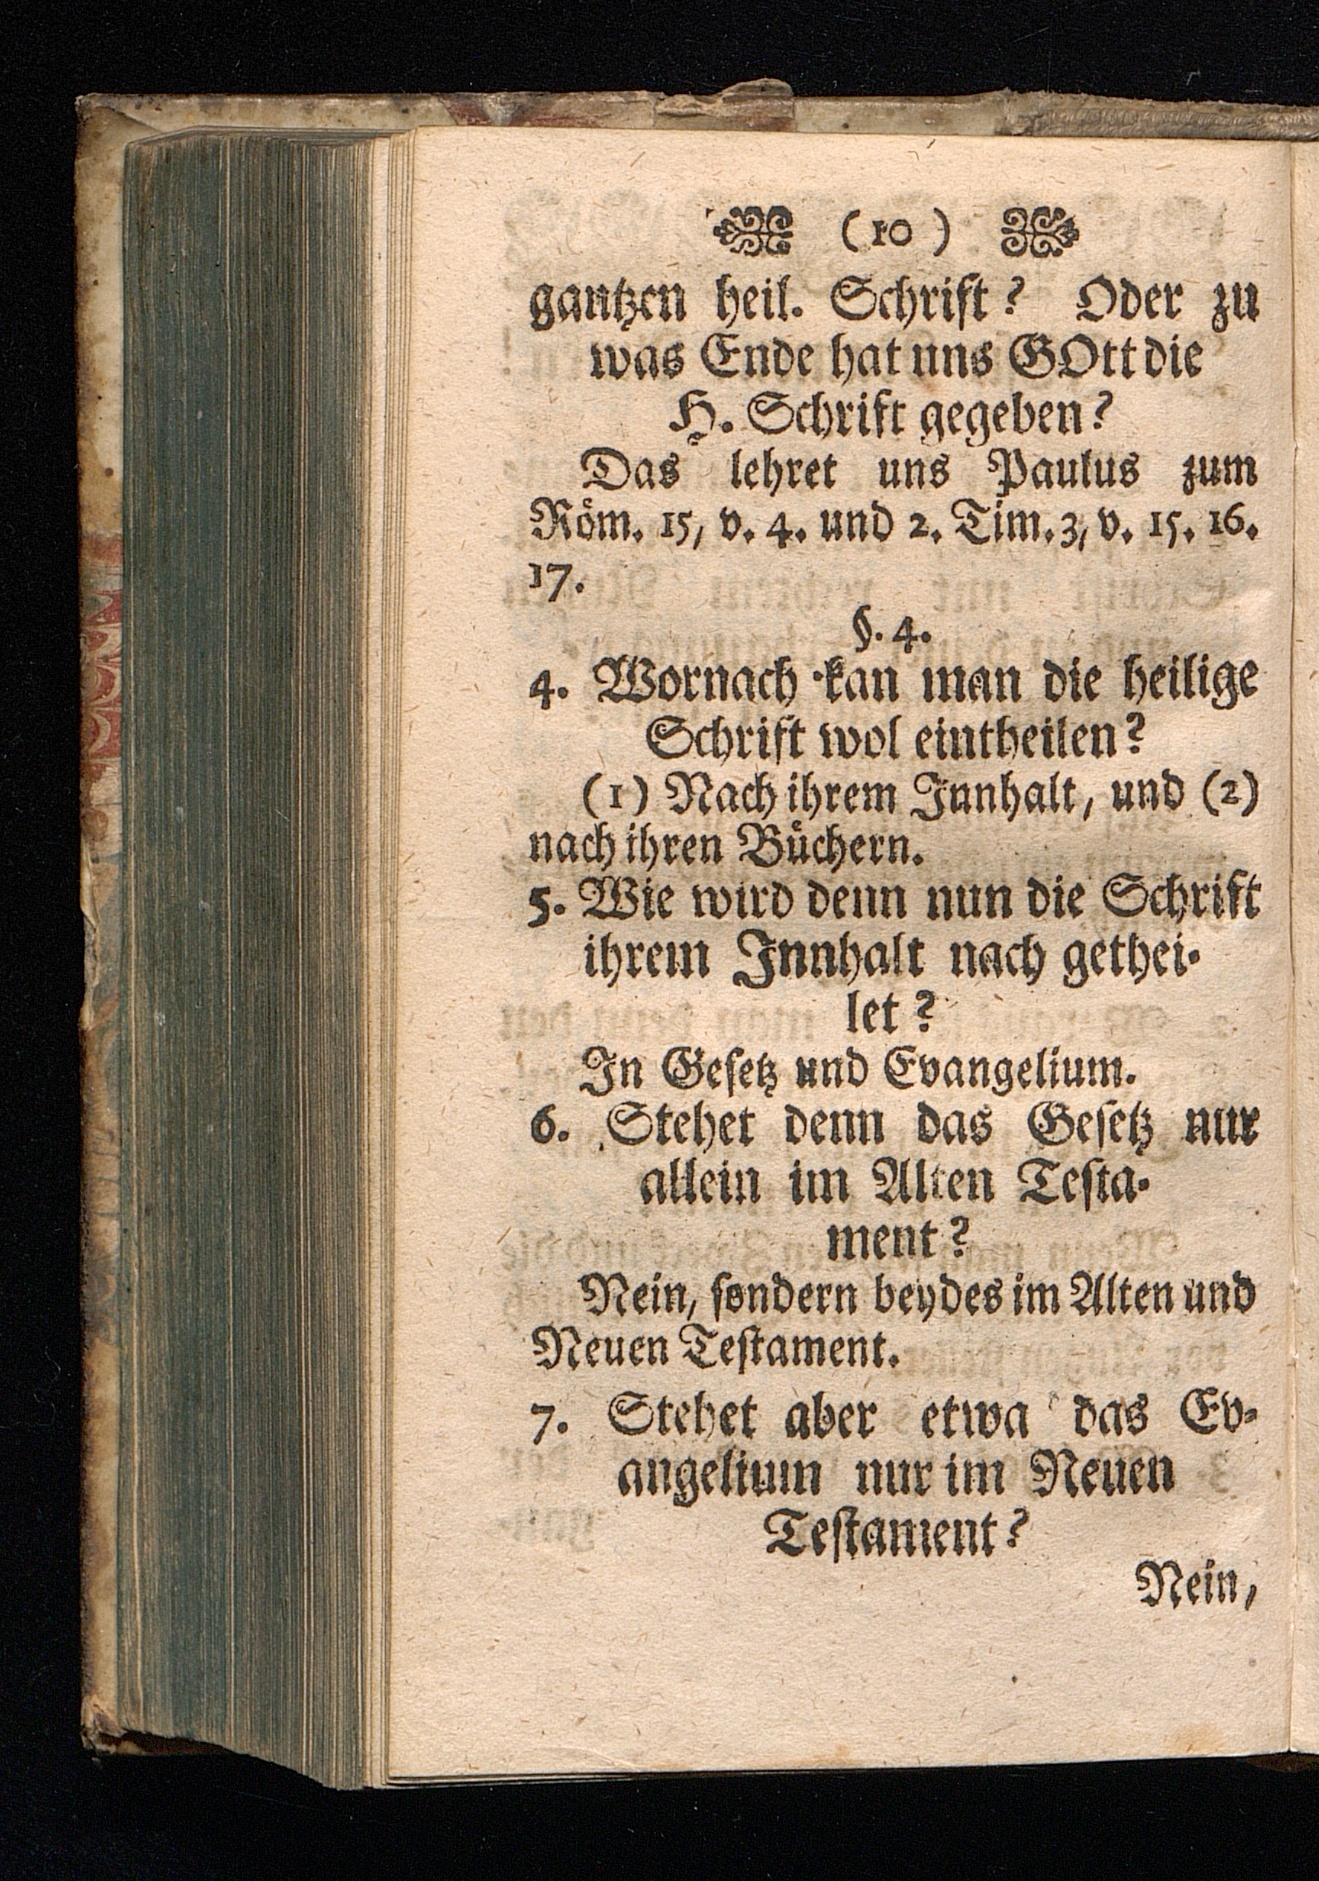 (10)
gantzen heil. Schrift? Oder zu
was Ende hat uns GOtt die
H. Schrift gegeben?
Das lehret uns Paulus zum
Röm. 15, v. 4. und 2. Tim. 3, v. 15. 16.
17.
§. 4.
4. Wornach kan man die heilige
Schrift wol eintheilen?
(1) Nach ihrem Innhalt, und (2)
nach ihren Büchern.
5. Wie wird denn nun die Schrift
ihrem Innhalt nach gethei-
let?
In Gesetz und Evangelium.
6. Stehet denn das Gesetz nur
allein im Alten Testa-
ment?
Nein, sondern beydes im Alten und
Neuen Testament.
7. Stehet aber etwa das Ev-
angelium nur im Neuen
Testament?
Nein,